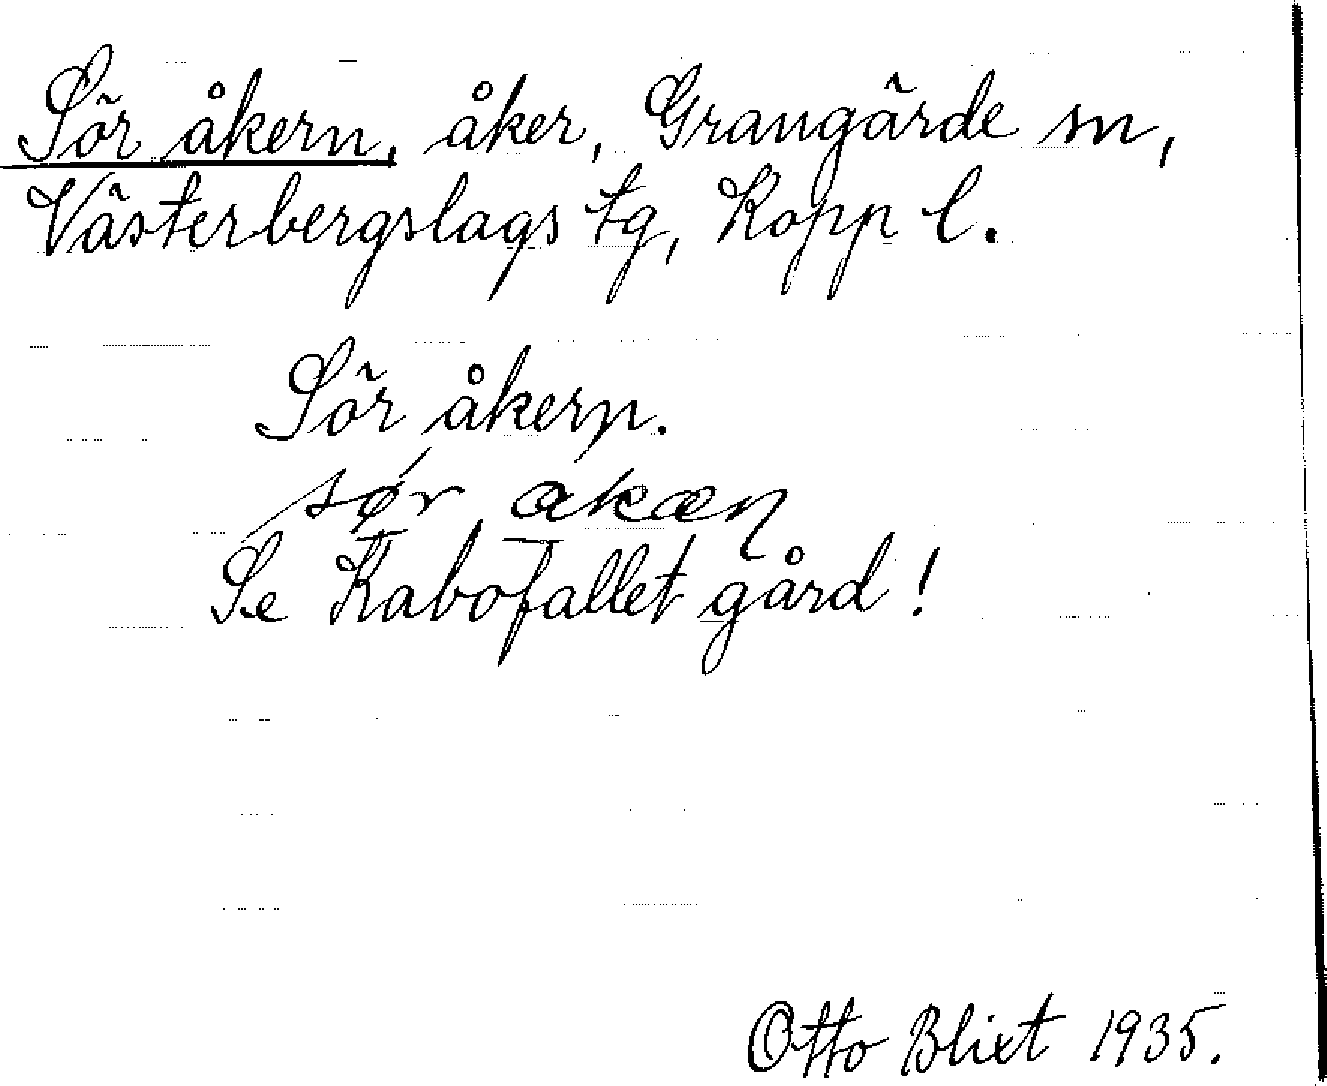 Sör åkern, åker, Grangärde sn,
Västerbergslags tg, Kopp l.
Sör åkern.
sør akæn
Se Kabofallet gård!
Otto Blixt 1935.